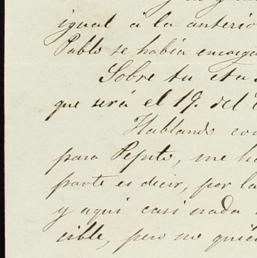 igual á la anterio
Pablo se habia encarga
Sobre tu eta
que será el 19. del
Hablando con
para Pepito, me ha
parte es decir, por la
y aqui casi nada
cible, pero no quier